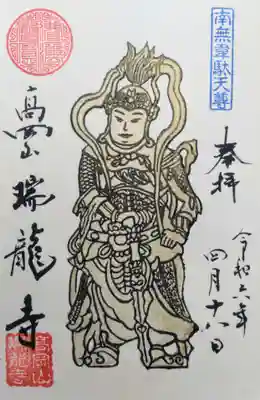 南無韋駄天尊
奉拝
令和六年
四月十八日
高岡山
瑞龍寺
高岡山
瑞龍寺